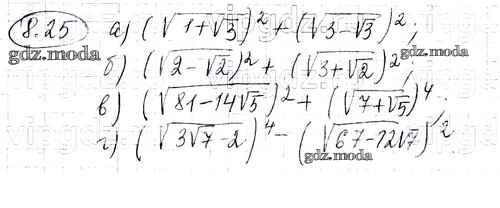 8.25 а) (√(1+√3))² + (√(3-√3))²;
gdz.moda
б) (√(2-√2))² + (√(3+√2))²;
gdz.moda
в) (√(81-14√5))² + (√(7+√5))⁴;
г) (√(3√7-2))⁴ - (√(67-12√7))²
gdz.moda